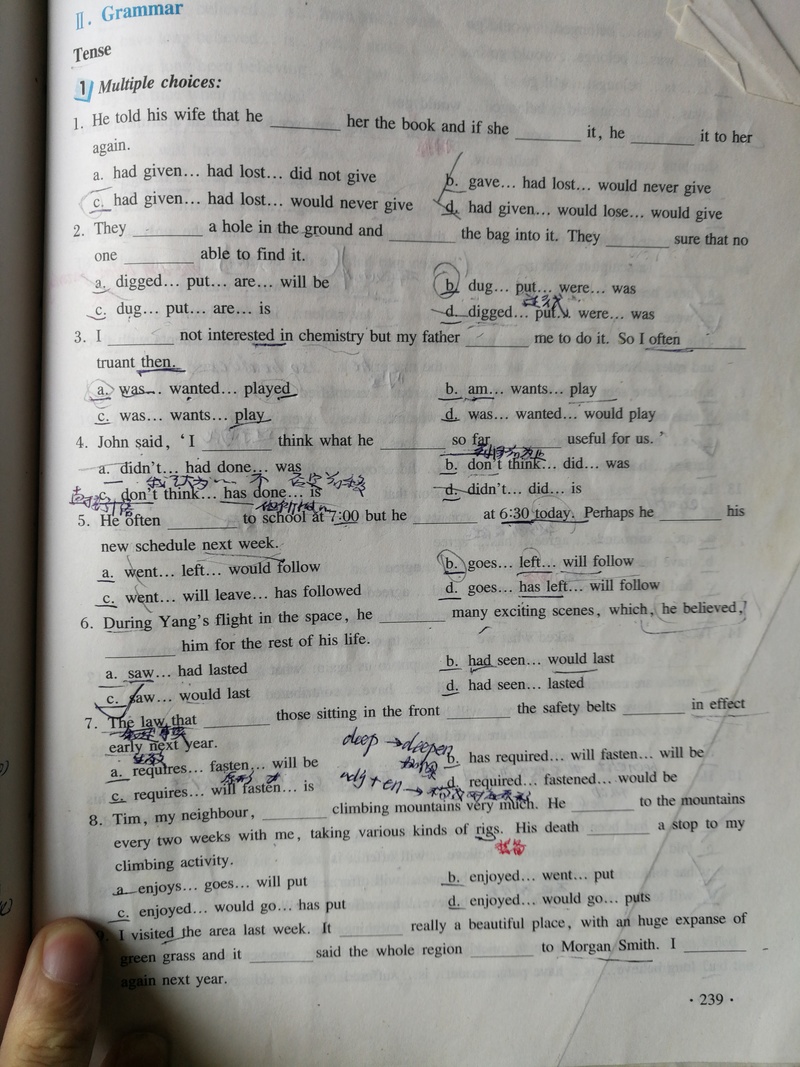 II. Grammar
Tense
1 Multiple choices:
1. He told his wife that he ________ her the book and if she ________ it, he ________ it to her
again.
a. had given... had lost... did not give
b. gave... had lost... would never give
c. had given... had lost... would never give
d. had given... would lose... would give
2. They ________ a hole in the ground and ________ the bag into it. They ________ sure that no
one ________ able to find it.
a. digged... put... are... will be
b. dug... put... were... was
c. dug... put... are... is
d. digged... put... were... was
3. I ________ not interested in chemistry but my father ________ me to do it. So I often ________
truant then.
a. was... wanted... played
b. am... wants... play
c. was... wants... play
d. was... wanted... would play
4. John said, ‘I ________ think what he ________ so far ________ useful for us.’
a. didn't... had done... was
b. don't think... did... was
c. don't think... has done... is
d. didn't... did... is
5. He often ________ to school at 7:00 but he ________ at 6:30 today. Perhaps he ________ his
new schedule next week.
a. went... left... would follow
b. goes... left... will follow
c. went... will leave... has followed
d. goes... has left... will follow
6. During Yang's flight in the space, he ________ many exciting scenes, which, he believed,
________ him for the rest of his life.
a. saw... had lasted
b. had seen... would last
c. saw... would last
d. had seen... lasted
7. The law that ________ those sitting in the front ________ the safety belts ________ in effect
early next year.
deep → deepen
a. requires... fasten... will be
b. has required... will fasten... will be
c. requires... will fasten... is
d. required... fastened... would be
8. Tim, my neighbour, ________ climbing mountains very much. He ________ to the mountains
every two weeks with me, taking various kinds of rigs. His death ________ a stop to my
climbing activity.
a. enjoys... goes... will put
b. enjoyed... went... put
c. enjoyed... would go... has put
d. enjoyed... would go... puts
I visited the area last week. It ________ really a beautiful place, with an huge expanse of
green grass and it ________ said the whole region ________ to Morgan Smith. I ________
again next year.
· 239 ·